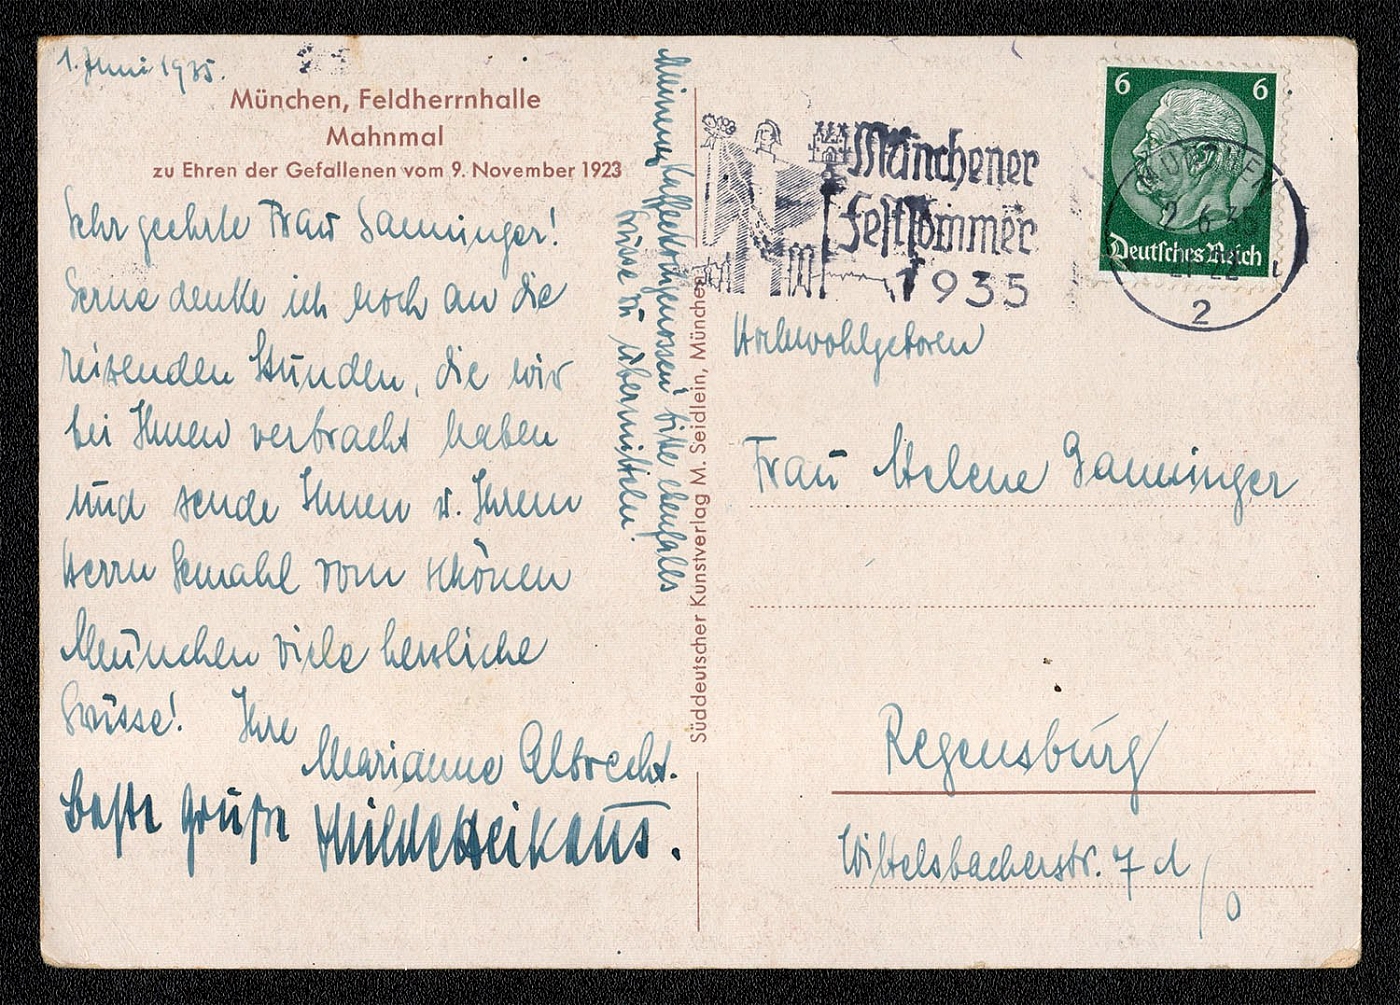 1. Juni 1935.
München, Feldherrnhalle
Mahnmal
zu Ehren der Gefallenen vom 9. November 1923
Sehr geehrte Frau
Gerne denke ich noch an die
reizenden Stunden, die wir
bei Ihnen verbracht haben
und sende Ihnen u. Ihrem
Herrn Gemahl vom schönen
München viele herzliche
Grüsse! Ihre
Marianne Albrecht.
beste Grüße
Meinen bitte ebenfalls
Grüsse zu übermitteln!
Süddeutscher Kunstverlag M. Seidlein, München
Münchener
Festsommer
1935
6 6
Deutsches Reich
MÜNCHEN
2
Hochwohlgeboren
Frau Helene
Regensburg
Wittelsbacherstr. 7 d/0